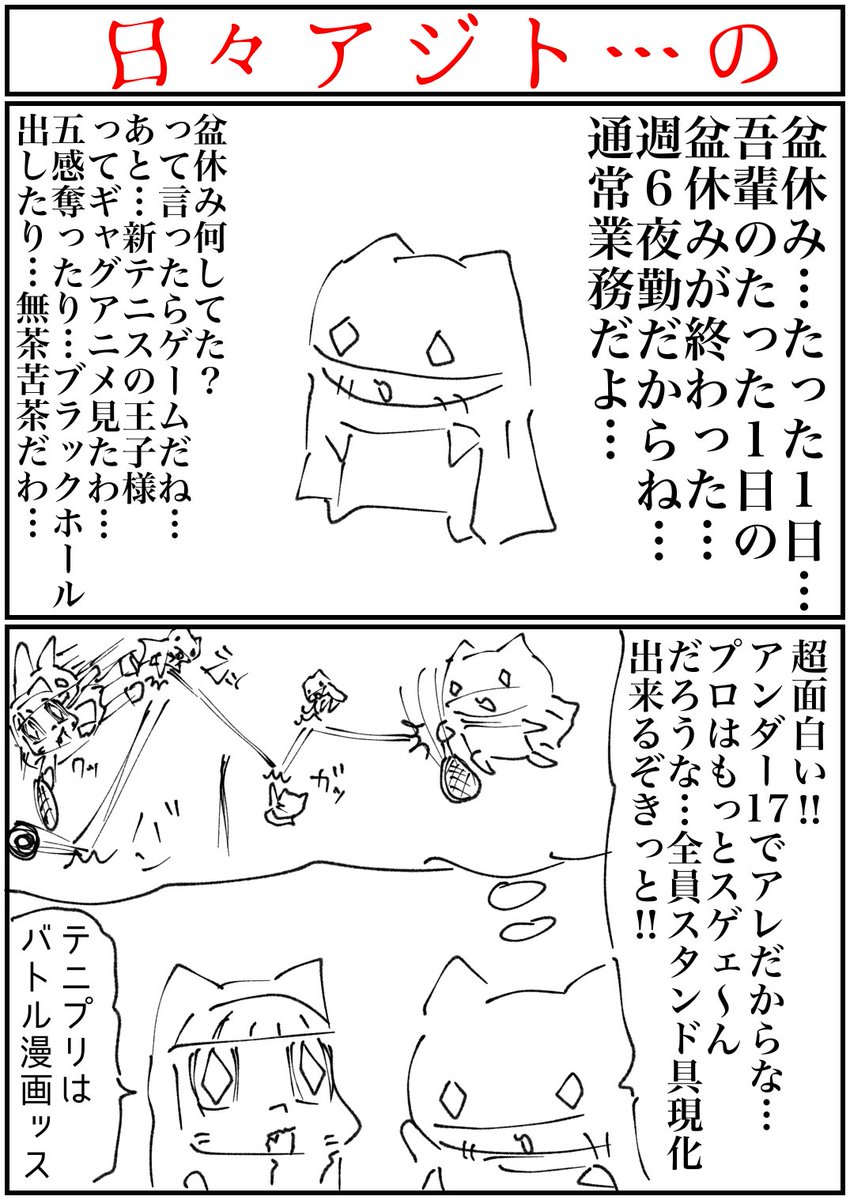 日々アジト…の
盆休み…たった１日…
吾輩のたった１日の
盆休みが終わった…
週６夜勤だからね…
通常業務だよ…
盆休み何してた？
って言ったらゲームだね…
あと…新テニスの王子様
ってギャグアニメ見たわ…
五感奪ったり…ブラックホール
出したり…無茶苦茶だわ…
超面白い!!
アンダー17でアレだからな…
プロはもっとスゲェ〜ん
だろうな…全員スタンド具現化
出来るぞきっと!!
ガッ
テニプリは
バトル漫画ッス